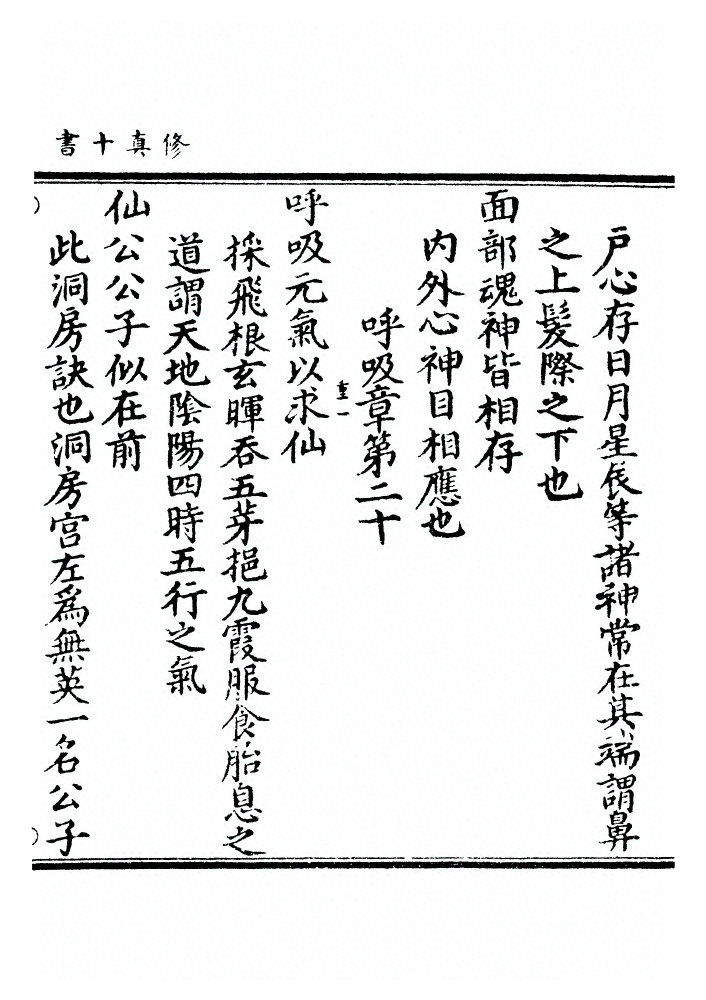 修真十書
戶心存日月星辰等諸神常在其端謂鼻
之上髮際之下也
面部魂神皆相存
內外心神目相應也
呼吸章第二十
重一
呼吸元氣以求仙
採飛根玄暉吞五芽挹九霞服食胎息之
道謂天地陰陽四時五行之氣
仙公公子似在前
此洞房訣也洞房宮左為無英一名公子